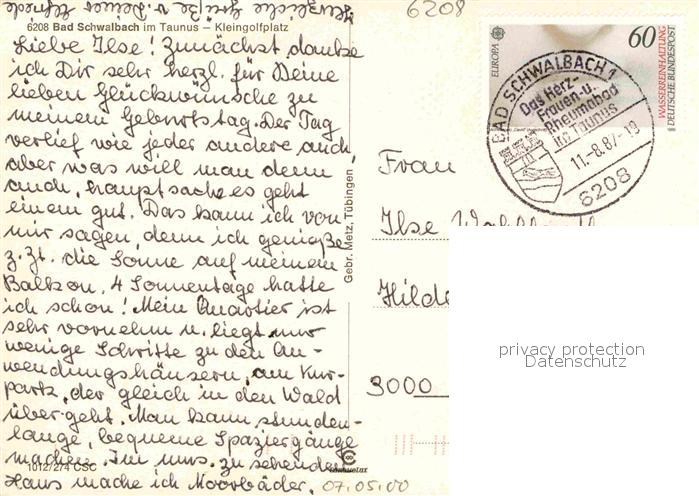 Herzliche Grüße v. Deiner Elfriede
6208
6208 Bad Schwalbach im Taunus – Kleingolfplatz
Liebe Ilse! Zunächst danke
ich Dir sehr herzl. für Deine
lieben Glückwünsche zu
meinem Geburtstag. Der Tag
verlief wie jeder andere auch,
aber was will man denn
auch, hauptsache es geht
einem gut. Das kann ich von
mir sagen, denn ich genieße
z. Zt. die Sonne auf meinem
Balkon. 4 Sonnentage hatte
ich schon! Mein Quartier ist
sehr vornehm u. liegt nur
wenige Schritte zu den An-
wendungshäusern, am Kur-
park, der gleich in den Wald
übergeht. Man kann stunden-
lange, bequeme Spaziergänge
machen. Im uns. zu sehenden
Haus mache ich Moorbäder.
1012/274 CSC
07.05.00
Gebr. Metz, Tübingen
EUROPA
60
WASSERREINHALTUNG
DEUTSCHE BUNDESPOST
BAD SCHWALBACH 1
Das Herz-
Frauen-u.
Rheumabad
im Taunus
11.-8.87-19
6208
Frau
Ilse
Hilde
3000
privacy protection
Datenschutz